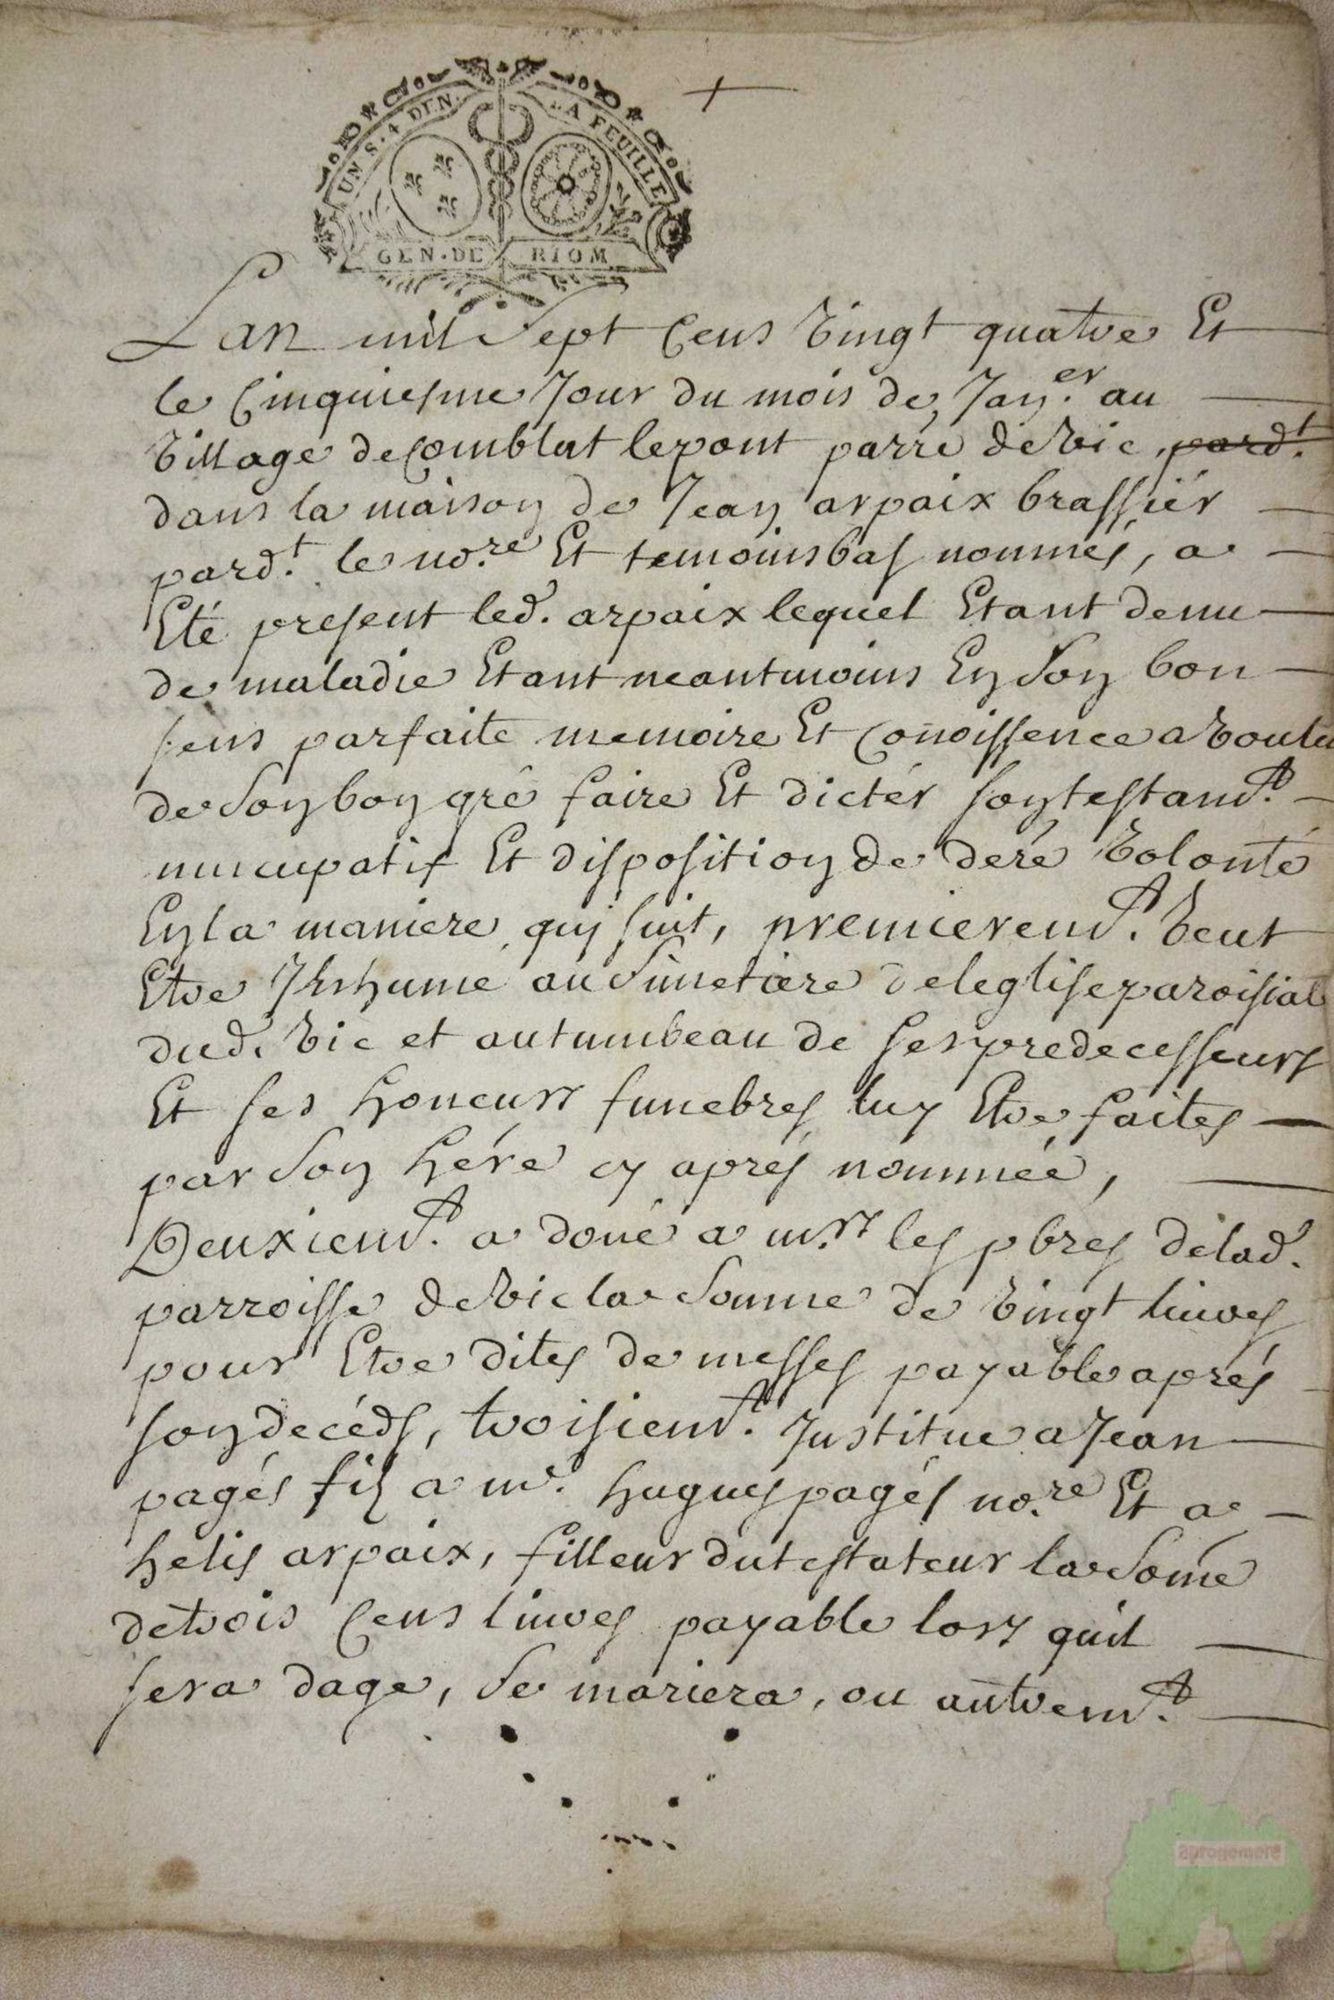 UN S. 4 DEN. LA FEUILLE
GEN. DE RIOM
Lan mil sept cens vingt quatre Et
le Cinquiesme Jour du mois de Jan.er au
village de comblat lepont parre de vic, pard.t
dans la maison de Jean arpaix brassiér
pard.t le no.re Et temoins bas nommés, a
Eté present led. arpaix lequel Etant detnu
de maladie Etant neantmoins En son bon
sens parfaite memoire Et conoissence a voulu
de son bon gré faire Et dictér son testam.t
nuncupatif Et disposition de dere volonté
En la maniere qui suit, premierem.t veut
Etre Inhumé au Simetiere de leglise paroisial
dud. vic et au tumbeau de ses predecesseurs
Et ses honeurs funebres luy Etre faites
par son hére cy aprés nommée,
Deuxiem.t a doné a m.rs les pbres de lad.
parroisse de vic la somme de vingt livres
pour Etre dites de messes payable aprés
son decéds, troisiem.t Institue a Jean
pagés fils a m.e hugues pagés no.re Et a
helis arpaix, filleur du testateur la some
de trois cens livres payable lors quil
sera dage, se mariera, ou autrem.t
aprogemere